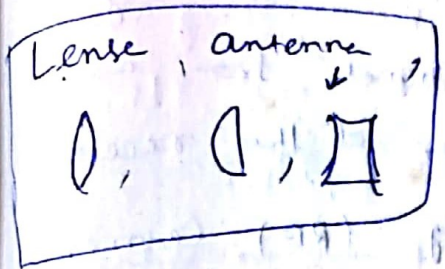 Lense, antenna,